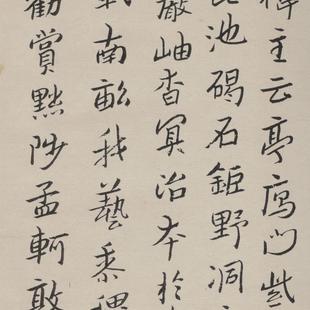 禪主云亭鴈門紫
池碣石鉅野洞
巖岫杳冥治本於
載南畝我藝黍稷
勸賞黜陟孟軻敦